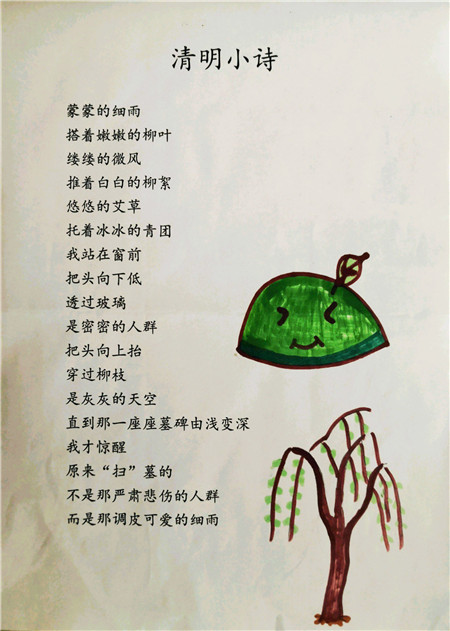 清明小诗
蒙蒙的细雨
搭着嫩嫩的柳叶
缕缕的微风
推着白白的柳絮
悠悠的艾草
托着冰冰的青团
我站在窗前
把头向下低
透过玻璃
是密密的人群
把头向上抬
穿过柳枝
是灰灰的天空
直到那一座座墓碑由浅变深
我才惊醒
原来“扫”墓的
不是那严肃悲伤的人群
而是那调皮可爱的细雨